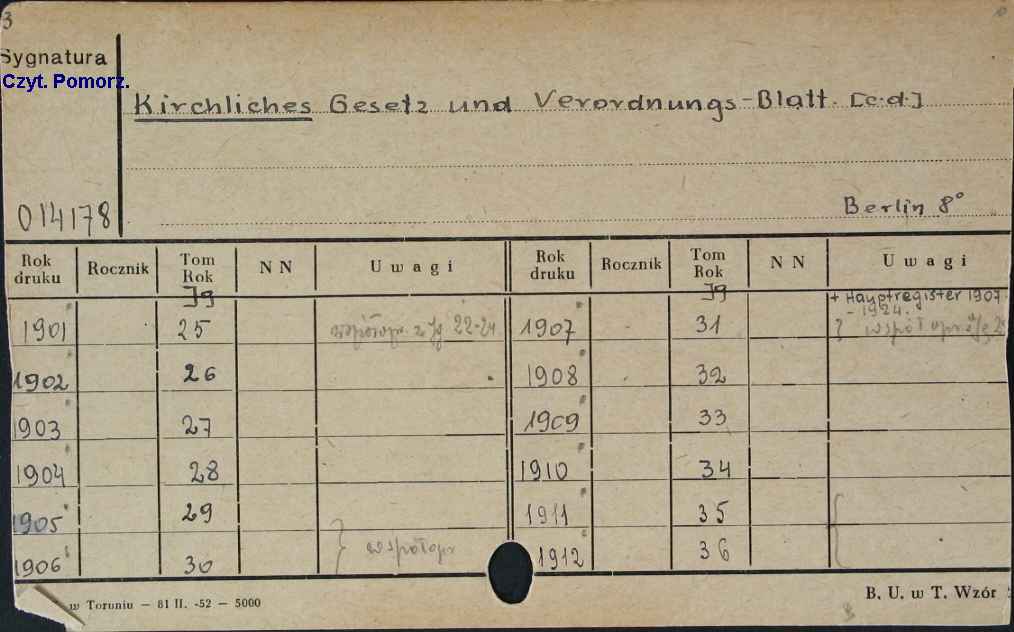 3
Sygnatura
Czyt. Pomorz.
Kirchliches Gesetz und Verordnungs-Blatt. [c.d.]
014178
Berlin 8°
Rok druku Rocznik Tom Rok NN Uwagi Rok druku Rocznik Tom Rok NN Uwagi
Jg Jg + Hauptregister 1907
- 1924.
1901 25 współopr. z Jg 22-24. 1907 31 } współopr z Jg
1902 26 1908 32
1903 27 1909 33
1904 28 1910 34
1905 29 1911 35
1906 30 } współopr 1912 36
w Toruniu — 81 II. -52 — 5000
B. U. w T. Wzór